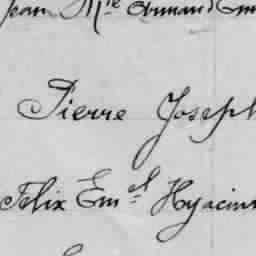 Jean Mie Armand Em
Pierre Joseph
Félix Emel Hyacin